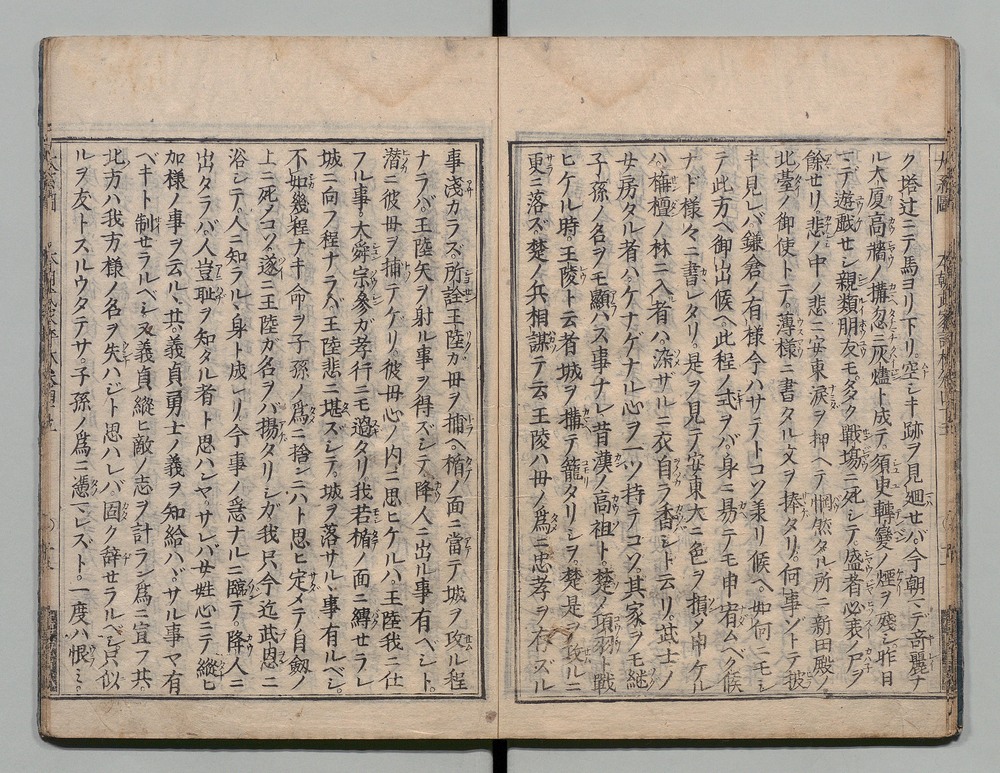 ク塔辻ニテ馬ヨリ下リ。空シキ跡ヲ見廻セバ。今朝マデ奇麗ナ
ル大厦高牆ノ搆忽ニ灰燼ト成テ。須臾轉變ノ煙ヲ殘シ。昨日
マデ遊戯セシ親類朋友モ。多ク戰塲ニ死シテ。盛者必衰ノ尸ヲ
餘セリ。悲ノ中ノ悲ニ安東淚ヲ押ヘテ惘然タル所ニ新田殿ノ
北臺ノ御使トテ。薄樣ニ書タル文ヲ捧タリ。何事ゾトテ披
キ見レバ鎌倉ノ有樣今ハサテトコソ羕リ候ヘ。如何ニモシ
テ此方ヘ御出候ヘ。此程ノ式ヲバ。身ニ易テモ申宥ムベク候
ナド樣々ニ書レタリ。是ヲ見テ安東大ニ色ヲ損ジ申ケル
ハ栴檀ノ林ニ入者ハ。染ザルニ衣自ラ香シト云リ。武士ノ
女房タル者ハ。ケナゲナル心ヲ一ツ持テコソ。其家ヲモ継
子孫ノ名ヲモ顯ハス事ナレ昔漢ノ高祖ト。楚ノ項羽ト戰
ヒケル時。王陵ト云者城ヲ搆テ籠タリシヲ。楚是ヲ攻ルニ
更ニ落ズ。楚ノ兵相謀テ云王陵ハ母ノ爲ニ忠孝ヲ存ズル
事淺カラズ。所詮王陸カ母ヲ捕ヘ楯ノ面ニ當テ城ヲ攻ル程
ナラバ。王陸矢ヲ射ル事ヲ得ズシテ。降人ニ出ル事有ベシト。
潜ニ彼母ヲ捕テケリ。彼母心ノ内ニ思ヒケルハ。王陸我ニ仕
フル事。大舜宗參ガ孝行ニモ過タリ我若楯ノ面ニ縛セラレ
城ニ向フ程ナラバ。王陸悲ニ堪ズシテ。城ヲ落サルヽ事有ルベシ。
不如幾程ナキ命ヲ子孫ノ爲ニ捨ンニハト思ヒ定メテ自劔ノ
上ニ死ノコソ。遂ニ王陸ガ名ヲバ揚タリシガ我只今迄武恩ニ
浴シテ。人ニ知ラルヽ身ト成レリ今事ノ急ナルニ臨テ。降人ニ
出タラバ。人豈耻ヲ知タル者ト思ハンヤサレバ女姓心ニテ縱ヒ
加様ノ事ヲ云ルヽ共。義貞勇士ノ義ヲ知給ハヾ。サル事ヤ有
ベキト制セラルベシ又義貞縱ヒ敵ノ志ヲ計ラン爲ニ宜フ共。
北方ハ我方樣ノ名ヲ失ハジト思ハレバ。固ク辞セラルベシ只似
ルヲ友トスルウタテサ。子孫ノ爲ニ憑マレズト。一度ハ恨ミ。